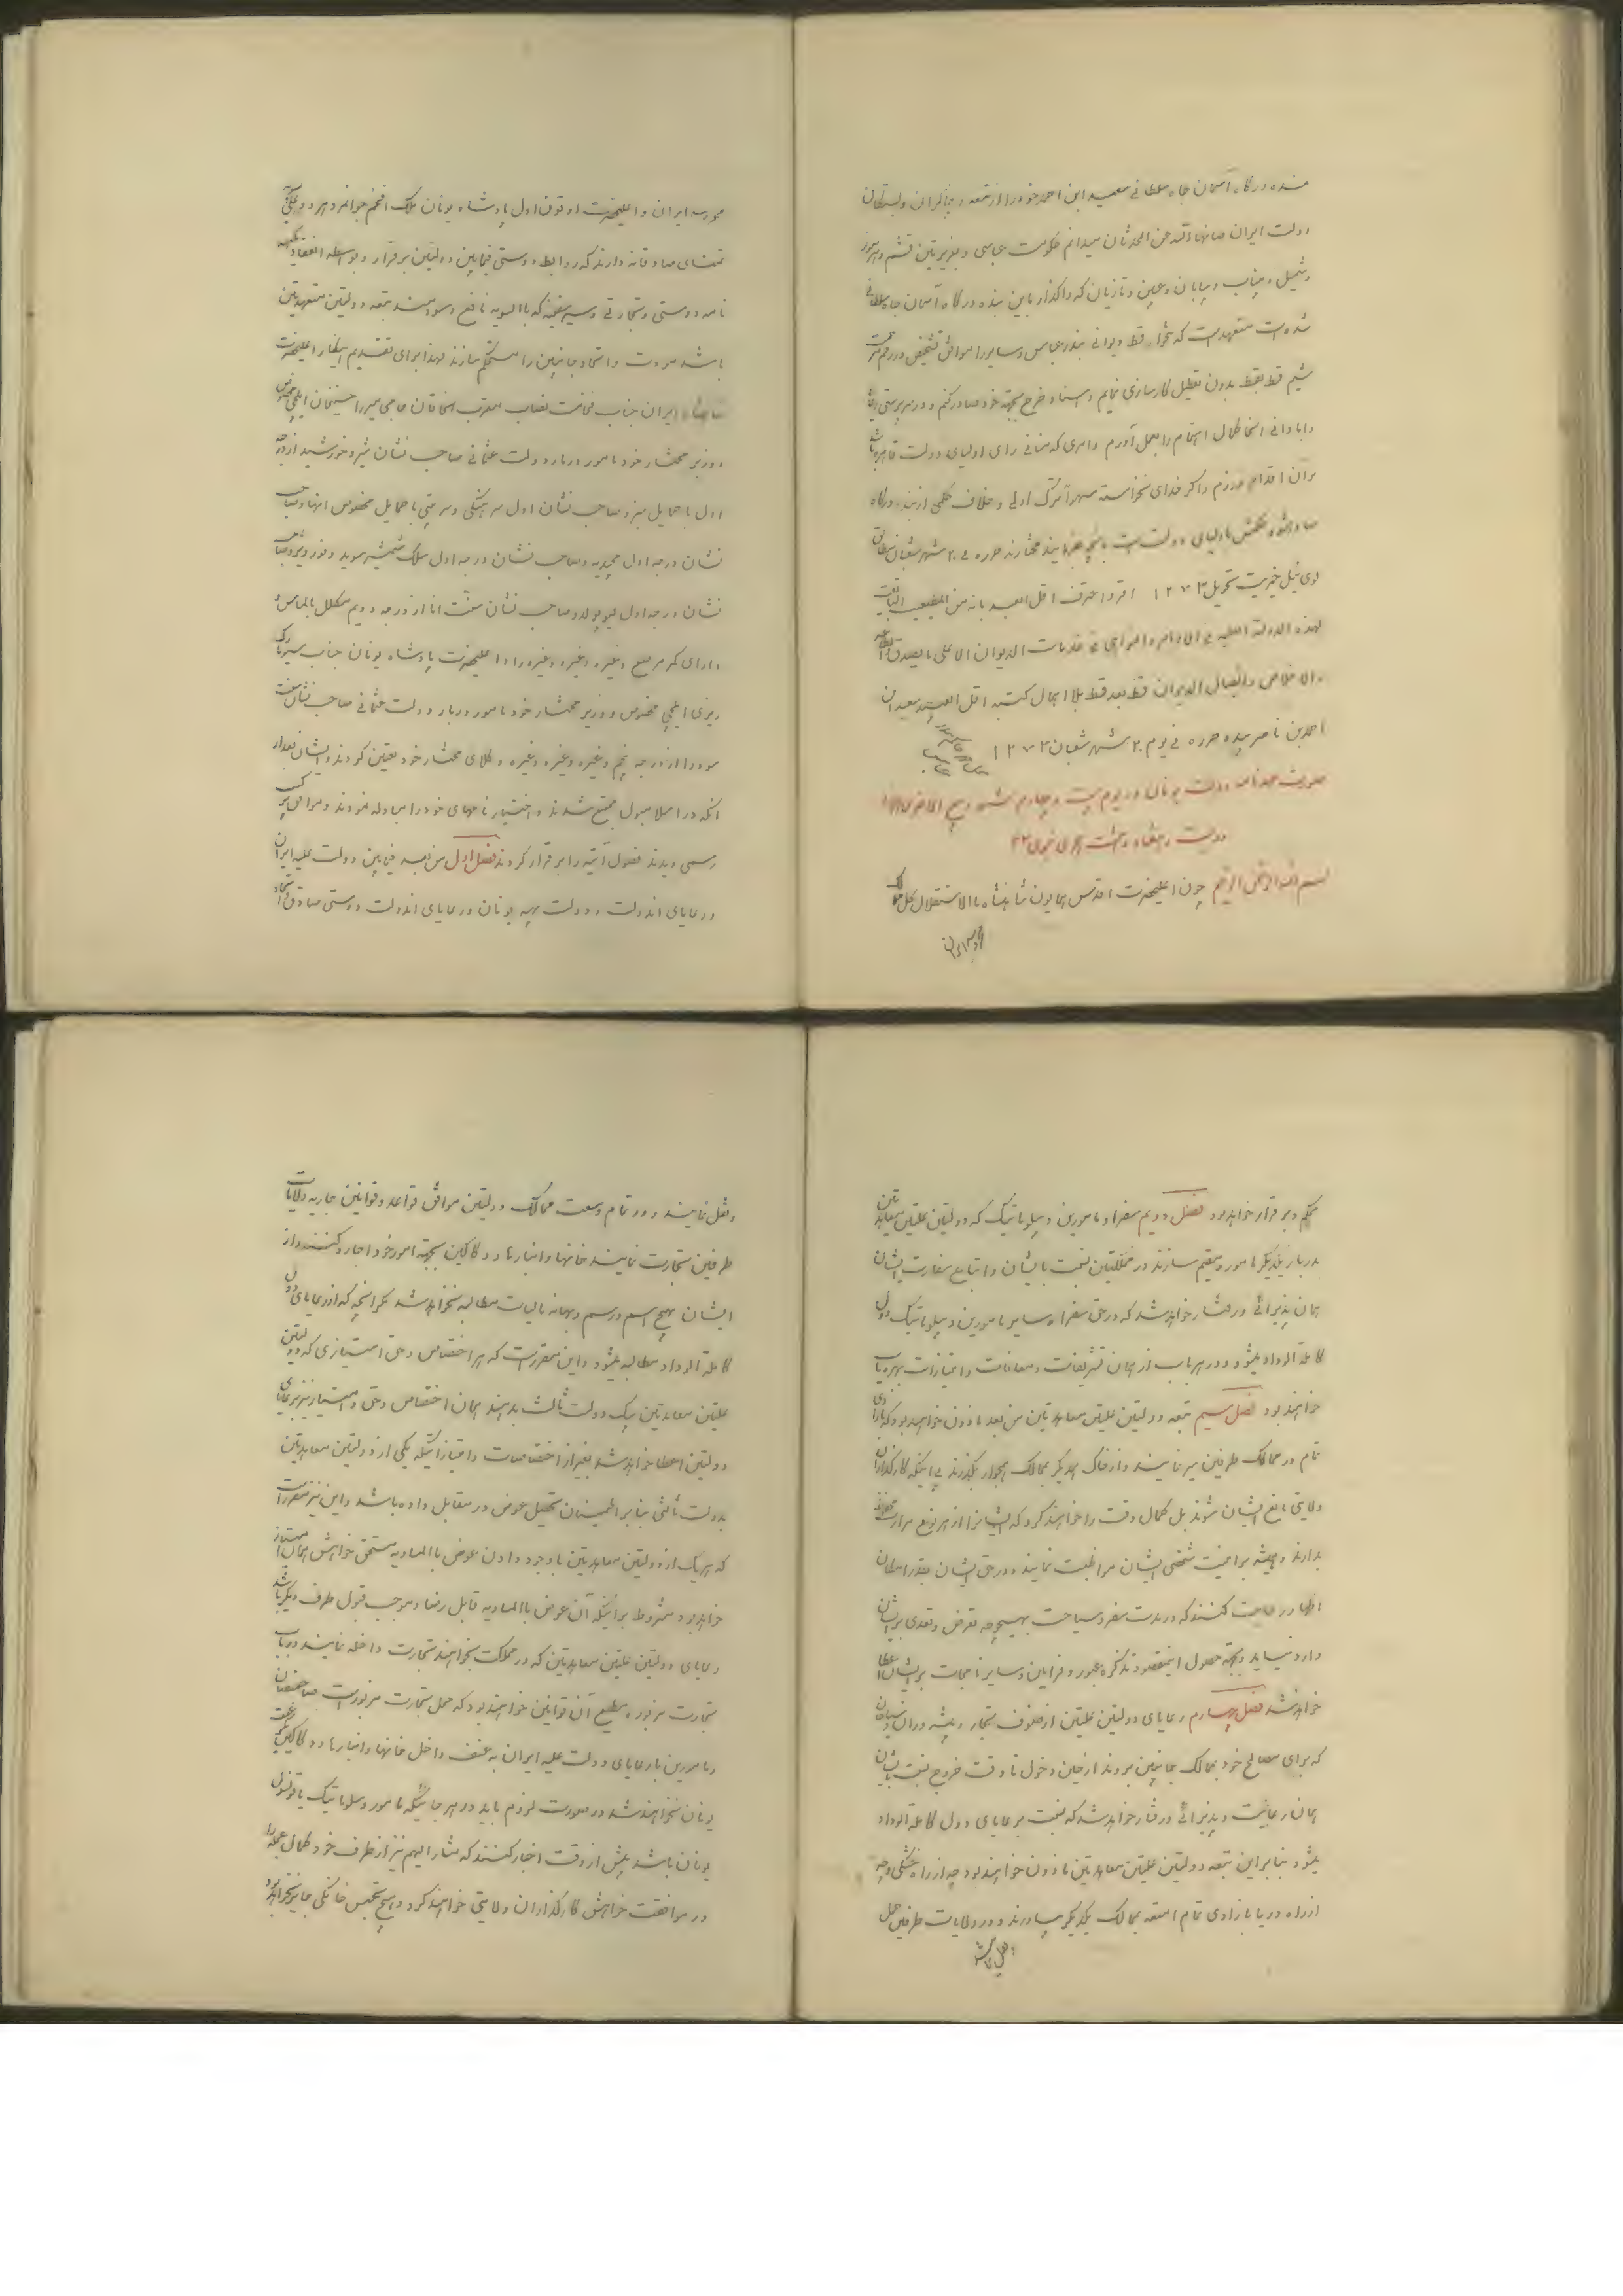 بنده درگاه آسمان جاه سلطانی سعید ابن احمد خود را از تبعه و چاکران و بستگان
دولت ایران صانها الله عن الحدثان میدانم حکومت عباسی و جزیرتین قشم و هرموز
و شمیل و میناب و بیابان و تازیان که واگذار باین بنده درگاه آسمان جاه سلطانی
شده است متعهد است که تنخواه قسط دیوانی بندرعباس و سایر را موافق تشخیص و رقم
قسط بقسط بدون تعطیل کارسازی نمایم و اسناد خرج بجهة خود صادر کنم و در سرپرستی رعایا
و آبادانی آنجا کمال اهتمام را بعمل آورم و امری که منافی رای اولیای دولت قاهره باشد
بر آن اقدام نورزم و اگر خدای نخواسته سهواً ترک اولی و خلاف حکمی از بنده درگاه
صادر شود اولیای دولت بهر چه بفرمایند مختارند حرره فی ۲۰ شهر شعبان مطابق
لوی ئیل خیریت تحویل ۱۲۷۳ اقر و اعترف اقل العبید بانه من المطیعین
لهذه الدولة العلیه فی الاوامر و النواهی و خدمات الدیوان الاعلی بالصدق
و الاخلاص و ایصال الدیوان قسط بعد قسط بلا اهمال کتبه اقل العبید سعید ابن
احمد بن ناصر بیده حرره فی یوم ۲۰ شهر شعبان ۱۲۷۳
صورت عهدنامه دولت یونان در یوم بیست و چهارم شهر ربیع الآخر
دویست و هفتاد و هشت هجری نبوی
بسم الله الرحمن الرحیم چون اعلیحضرت اقدس همایون شاهنشاه بالاستقلال کل ممالک
محروسه ایران
محروسه ایران و اعلیحضرت اوتون اول پادشاه یونان ملک افخم جوانمرد هر دو علی السویه
تمنای صادقانه دارند که روابط دوستی فیمابین دولتین برقرار و بواسطه انعقاد عهد
نامه دوستی و تجارتی و سیر سفینه که بالسویه نافع و سودمند تبعه دولتین متعهدتین
باشد مودت و اتحاد جانبین را مستحکم سازند لهذا برای تقدیم اینکار اعلیحضرت
شاهنشاه ایران جناب فخامت نصاب مقرب الخاقان حاجی میرزا حسینخان ایلچی مخصوص
و وزیر مختار خود مامور دربار دولت عثمانی صاحب نشان شیر و خورشید از درجه
اول با حمایل سبز و صاحب نشان اول سرهنگی و سرتیپی با حمایل مخصوص آنها و صاحب
نشان درجه اول مجیدیه و صاحب نشان درجه اول
نشان درجه اول لیوپولد و صاحب نشان سنت انا از درجه دویم مکلل بالماس و
دارای کمر مرصع و غیره و غیره و غیره را و اعلیحضرت پادشاه یونان جناب
ایلچی مخصوص و وزیر مختار خود مامور دربار دولت عثمانی صاحب نشان
از درجه پنجم و غیره و غیره و غیره وکلای مختار خود تعیین کردند و ایشان بعد از
آنکه در اسلامبول مجتمع شدند و اختیار نامهای خود را مبادله نمودند و موافق ترکیب
رسمی دیدند فصول آتیه را برقرار کردند فصل اول من بعد فیمابین دولت علیه ایران
و رعایای آندولت و دولت بهیه یونان و رعایای آندولت دوستی صادق و اتحاد
محکم و برقرار خواهد بود فصل دویم سفرا و مامورین دیپلوماتیک که دولتین علیتین معاهدتین
بدربار یکدیگر مامور و مقیم سازند در مملکتین نسبت بایشان و اتباع سفارت ایشان
همان پذیرائی و رفتار خواهد شد که در حق سفرا و سایر مامورین دیپلوماتیک دول
کاملة الوداد میشود و در هر باب از همان تشریفات و معافات و امتیازات بهره یاب
خواهند بود فصل سیم تبعه دولتین علیتین معاهدتین من بعد ماذون خواهند بود که بازادی
تمام در ممالک طرفین سیر نمایند و از خاک همدیگر بممالک همجوار بگذرند بی اینکه کارگذاران
ولایتی مانع ایشان شوند بل کمال دقت را خواهند کرد که ایشانرا از هر نوع مرارت محفوظ
بدارند و همیشه بر امنیت شخصی ایشان مواظبت نمایند و در حق ایشان بقدر امکان
اظهار رعایت کنند که در مدت سفر و سیاحت بهیچوجه تعرض و تعدی بر ایشان
وارد نیاید و بجهة حصول اینمقصود تذکره عبور و فرامین و سایر نامجات بر ایشان اعطا
خواهد شد فصل چهارم رعایای دولتین علیتین از صنوف تجار و پیشه وران و سیاحان
که برای مصالح خود بممالک جانبین بروند از حین دخول تا وقت خروج نسبت بایشان
همان رعایت و پذیرائی و رفتار خواهد شد که نسبت بر عایای دول کاملة الوداد
میشود بنابراین تبعه دولتین علیتین معاهدتین ماذون خواهند بود چه از راه خشکی و چه
از راه دریا بازادی تمام امتعه بممالک یکدیگر بیاورند و در ولایات طرفین حمل
و نقل نمایند
و نقل نمایند و در تمام وسعت ممالک دولتین موافق قواعد و قوانین جاریه ولایات
طرفین تجارت نمایند خانها و انبارها و دکاکین بجهة امور خود اجاره کنند و از
ایشان بهیچ اسم و رسم و بهانه مالیات مطالبه نخواهد شد مگر آنچه که از رعایای دول
کاملة الوداد مطالبه میشود و این مقرر است که هر اختصاص و حق امتیازی که دولتین
علیتین معاهدتین بیک دولت ثالث بدهند همان اختصاص و حق و امتیاز نیز بر عایای
دولتین اعطا خواهد شد بغیر از اختصاصات و امتیازاتیکه یکی از دولتین معاهدتین
بدولت ثالثی بنا بر اطمینان تحصیل عوض در مقابل داده باشد و این نیز مقرر است
که هر یک از دولتین معاهدتین با وجود دادن عوض بالمساویه مستحق خواهش همان امتیاز
خواهد بود مشروط بر اینکه آن عوض بالمساویه قابل رضا و موجب قبول طرف دیگر باشد
رعایای دولتین علیتین معاهدتین که در مملکت بخواهند تجارت داخله نمایند در باب
تجارت مزبوره مطیع آن قوانین خواهند بود که محل تجارت مزبور است صاحبمنصبان
و مامورین با رعایای دولت علیه ایران به عنف داخل خانها و انبارها و دکاکین رعیت
یونان نخواهند شد در صورت لزوم باید در هر جائیکه مامور دیپلوماتیک یا قونسول
یونان باشد پیش از وقت اخبار کنند که مشارالیهم نیز از طرف خود کمال عجله را
در موافقت خواهش کارگذاران ولایتی خواهند کرد و هیچ تجسس خانگی جایز نخواهد بود